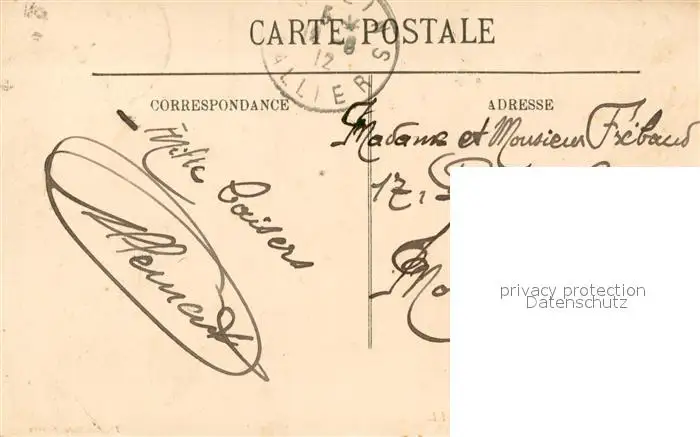 CARTE POSTALE
5 *
8
12
ALLIERS
CORRESPONDANCE
ADRESSE
Mille
Baisers
Madame et Monsieur Frébaud
17,
privacy protection
Datenschutz